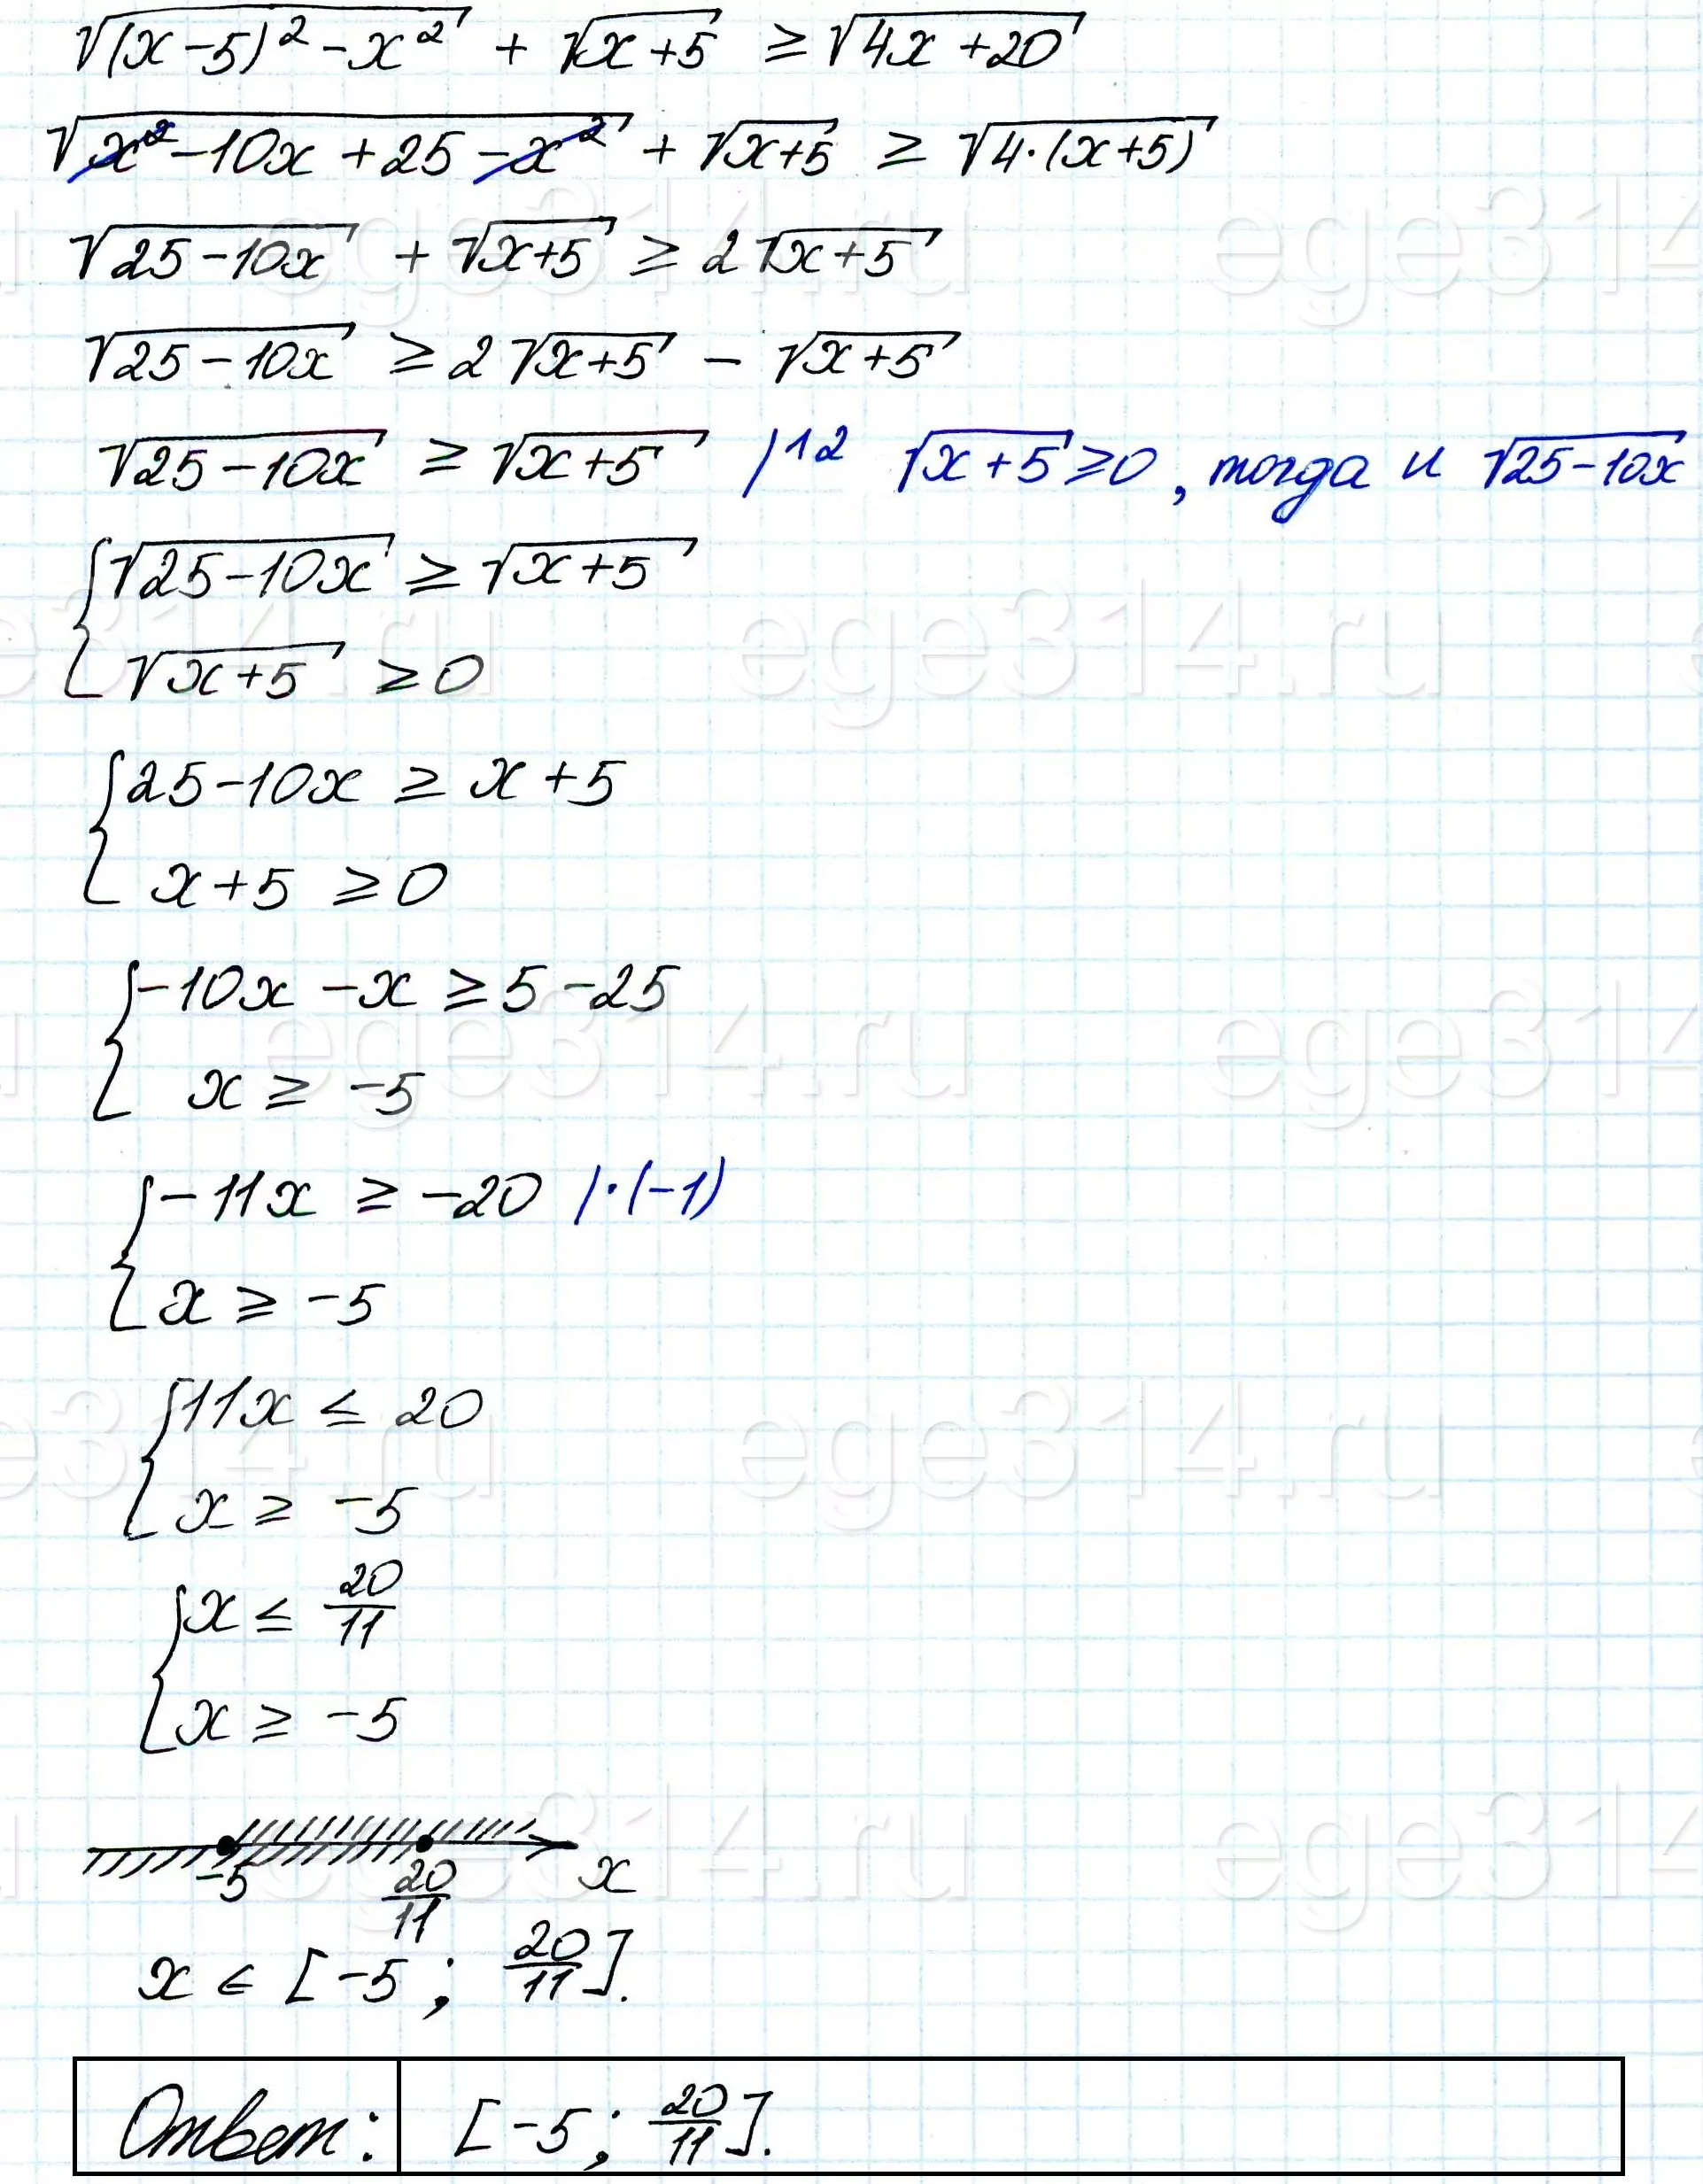 √(x-5)² - x² + √x+5 ≥ √4x+20
√x² - 10x + 25 - x² + √x+5 ≥ √4·(x+5)
√25-10x + √x+5 ≥ 2√x+5
√25-10x ≥ 2√x+5 - √x+5
√25-10x ≥ √x+5 |^2 √x+5 ≥ 0, тогда и √25-10x
{ √25-10x ≥ √x+5
√x+5 ≥ 0
{ 25-10x ≥ x+5
x+5 ≥ 0
{ -10x - x ≥ 5 - 25
x ≥ -5
{ -11x ≥ -20 |·(-1)
x ≥ -5
{ 11x ≤ 20
x ≥ -5
{ x ≤ 20/11
x ≥ -5
-5 20/11 x
x ∈ [-5; 20/11].
Ответ: [-5; 20/11].
ege314.ru